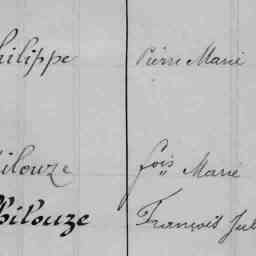 hilippe Pierre Marie
ilouze fois Marie
bilouze François Jul